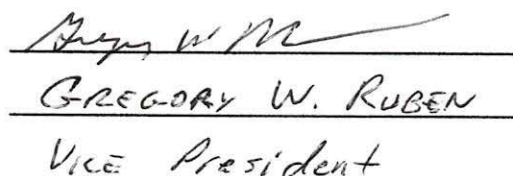 GREGORY W. RUBEN
Vice President